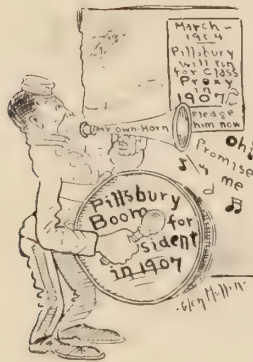 March -
1904
Pillsbury
will run
for Class
Prexy
in
1907
Please
him now
My own Horn
Oh!
Promise
me
Pillsbury
Boom for
sident
in 1907